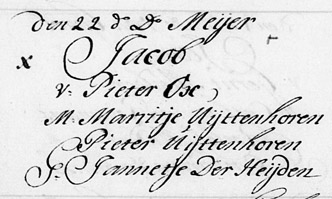 den 22 d° D° Meijer
x Jacob
v: Pieter Ox,
M. Marritje Uijttenhoren
Pieter Uijttenhoren
G: Jannetje Der Heijden